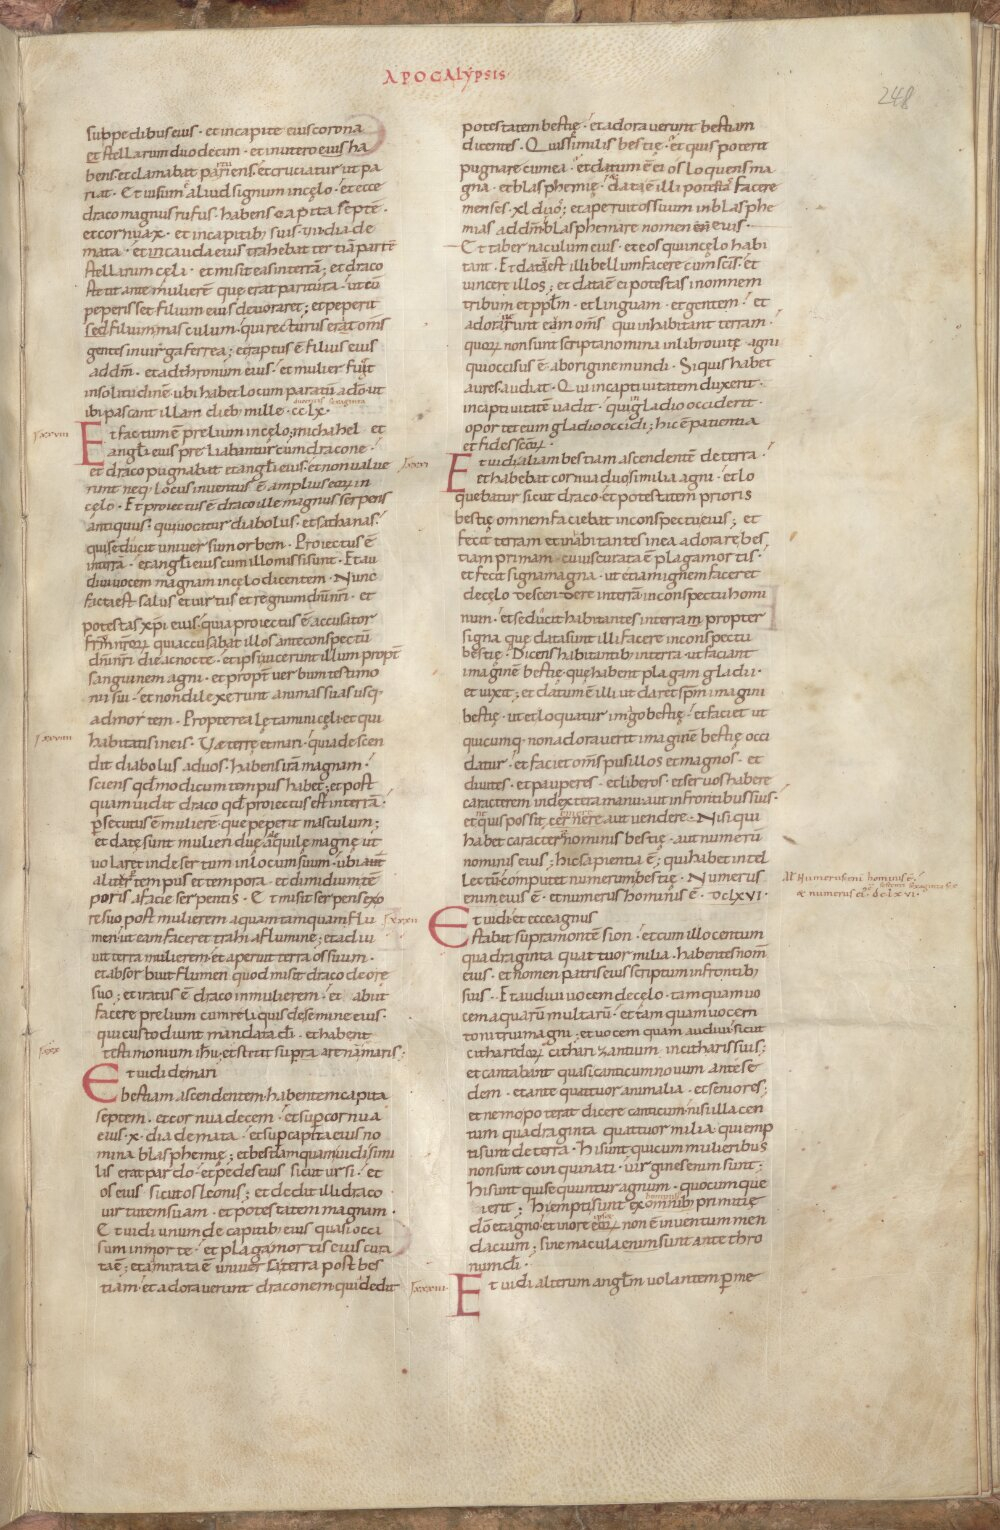 APOCALYPSIS
248
sub pedibus eius · et in capite eius corona
et stellarum duodecim · et in utero eius ha
bens et clamabat parturiens et cruciatur ut pa
riat · Et uisum aliud signum in cęlo · et ecce
draco magnus rufus · habens capita septē ·
et cornua x · et in capitib; suis · vii dia de
mata · et in cauda eius trahebat tertiā partē
stellarum cęli · et misit eas in terrā; et draco
stetit ante mulierē que erat paritura · ut cū
peperisset filium eius deuoraret; et peperit
sed filium masculum · qui recturus erat om̄s
gentes in uirga ferrea; et raptus ē filius eius
ad dm̄ · et ad thronum eius · et mulier fugit
in solitudinē ubi habet locum paratū a dō ut
ibi pascant illam dieb; mille · cclx ·
ducentis sexaginta
lxxviii
Et factum ē prelium in cęlo; michahel et
angl̄i eius preliabantur cum dracone ·
et draco pugnabat et angl̄i eius · et non value
runt neq; locus inuentus ē amplius eoꝝ in
cęlo · Et proiectus ē draco ille magnus serpens
antiquus · qui uocatur diabolus · et sathanas ·
qui seducit uniuersum orbem · Proiectus ē
in terrā · et angl̄i eius cum illo missi sunt · Et au
diui uocem magnam in cęlo dicentem · Nunc
facta est salus et uirtus et regnum dī nr̄i · et
potestas xp̄i eius · quia proiectus ē accusator
fratrū nr̄oꝝ qui accusabat illos ante conspectū
dī nr̄i die ac nocte · et ipsi uicerunt illum propt̄
sanguinem agni · et propt̄ uerbum testimo
nii sui · et non dilexerunt animas suas usq;
ad mortem · Propterea lętamini cęli et qui
lxxviiii
habitatis in eis · Uæ terrę et mari · quia descen
dit diabolus ad uos · habens irā magnam ·
sciens qd̄ modicum tempus habet; et post
quam uidit draco qd̄ proiectus est in terrā ·
ꝑsecutus ē mulierē · que peperit masculum;
et datę sunt mulieri duę alę aquilę magnę ut
uolaret in desertum in locum suum · ubi
alitur tempus et tempora · et dimidium tē
poris a facie serpentis · Et misit serpens ex o
re suo post mulierem aquam tamquam flu
men · ut eam faceret trahi a flumine; et adiu
uit terra mulierem et aperuit terra os suum ·
et absorbuit flumen quod misit draco de ore
suo; et iratus ē draco in mulierem · et abiit
facere prelium cum reliquis de semine eius ·
qui custodiunt mandata dī · et habent
lxxx
testimonium ih̄u; et stetit supra arenā maris;
Et uidi de mari
bestiam ascendentem · habentem capita
septem · et cornua decem · et suꝑ cornua
eius · x · diademata · et suꝑ capita eius no
mina blasphemię; et bestiam quam uidi simi
lis erat pardo · et pedes eius sicut ursi · et
os eius sicut os leonis; et dedit illi draco
uirtutem suam · et potestatem magnam ·
Et uidi unum de capitib; eius quasi occi
sum in morte · et plaga mortis eius cura
ta ē; et amirata ē uniuersa terra post bes
tiam · et adorauerunt draconem qui dedit
potestatem bestię · et adorauerunt bestiam
dicentes · Quis similis bestię · et quis poterit
pugnare cum ea · et datum ē ei os loquens ma
gna · et blasphemię · data ē illi potestas facere
menses · xl duo; et aperuit os suum in blasphe
mias ad dm̄ blasphemare nomen eius ·
Et tabernaculum eius · et eos qui in cęlo habi
tant · Et data est illi bellum facere cum sc̄is · et
uincere illos; et data ē ei potestas in omnem
tribum et ppl̄m · et linguam · et gentem · et
adorarunt eam om̄s qui inhabitant terram ·
quoꝝ non sunt scripta nomina in libro uitę agni
qui occisus ē ab origine mundi · Si quis habet
aures audiat · Qui in captiuitatem duxerit ·
in captiuitatē uadit · qui in gladio occiderit ·
oportet eum gladio occidi; hic ē patientia
et fides sc̄oꝝ ·
lxxxi
Et uidi aliam bestiam ascendentē de terra ·
et habebat cornua duo similia agni · et lo
quebatur sicut draco · et potestatem prioris
bestię omnem faciebat in conspectu eius; et
fecit terram et inhabitantes in ea adorare bes
tiam primam · cuius curata ē plaga mortis ·
et fecit signa magna · ut etiam ignem faceret
de cęlo descendere in terrā in conspectu homi
num · et seducit habitantes in terram propter
signa que data sunt illi facere in conspectu
bestię · Dicens habitantib; in terra · ut faciant
imaginē bestię · que habent plagam gladii ·
et uixit; et datum ē illi ut daret sp̄m imagini
bestię · ut et loquatur imago bestię · et faciet ut
quicumq; non adorauerit imaginē bestię occi
datur · et faciet om̄s pusillos et magnos · et
diuites · et pauperes · et liberos · et seruos habere
caracterem in dextera manu aut in frontibus suis ·
et ne quis possit cernere aut uendere · Nisi qui
habet caracter nominis bestię · aut numerū
nominis eius; hic sapientia ē; qui habet intel
lectū · computet numerum bestię · Numerus
enim eius ē · et numerus hominis ē · dclxvi ·
Al̄ Numerus eni hominis ē ·
sescenti sexaginta sex
& numerus eī · dclxvi ·
lxxxii
Et uidi et ecce agnus
stabat supra montē sion · et cum illo centum
quadraginta quattuor milia · habentes nom̄
eius · et nomen patris eius scriptum in frontib;
suis · Et audiui uocem de cęlo · tamquam uo
cem aquarū multarū · et tamquam uocem
tonitrui magni; et uocem quam audiui sicut
citharedoꝝ citharizantium in citharis suis;
et cantabant quasi canticum nouum ante se
dem · et ante quattuor animalia · et seniores;
et nemo poterat dicere canticum · nisi illa cen
tum quadraginta quattuor milia qui emp
ti sunt de terra · hi sunt qui cum mulieribus
non sunt coinquinati · uirgines enim sunt;
hi sunt qui sequuntur agnum · quocumque
ierit; hi empti sunt ex omnib; primitię
dō et agno · et in ore eoꝝ non ē inuentum men
dacium; sine macula enim sunt ante thro
num dī ·
lxxxiii
Et uidi alterum angl̄m uolantem ꝑ me